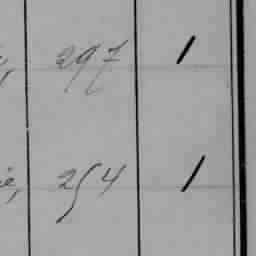 297 1
254 1